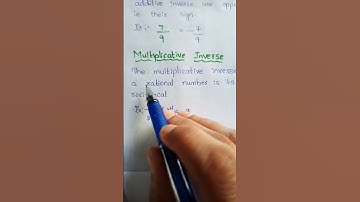 additive inverse are opp
in their sign.
Ex:- 7/9 = -7/9
Multiplicative Inverse
The multiplicative inverse
a rational number is its
reciprocal
Ex:-